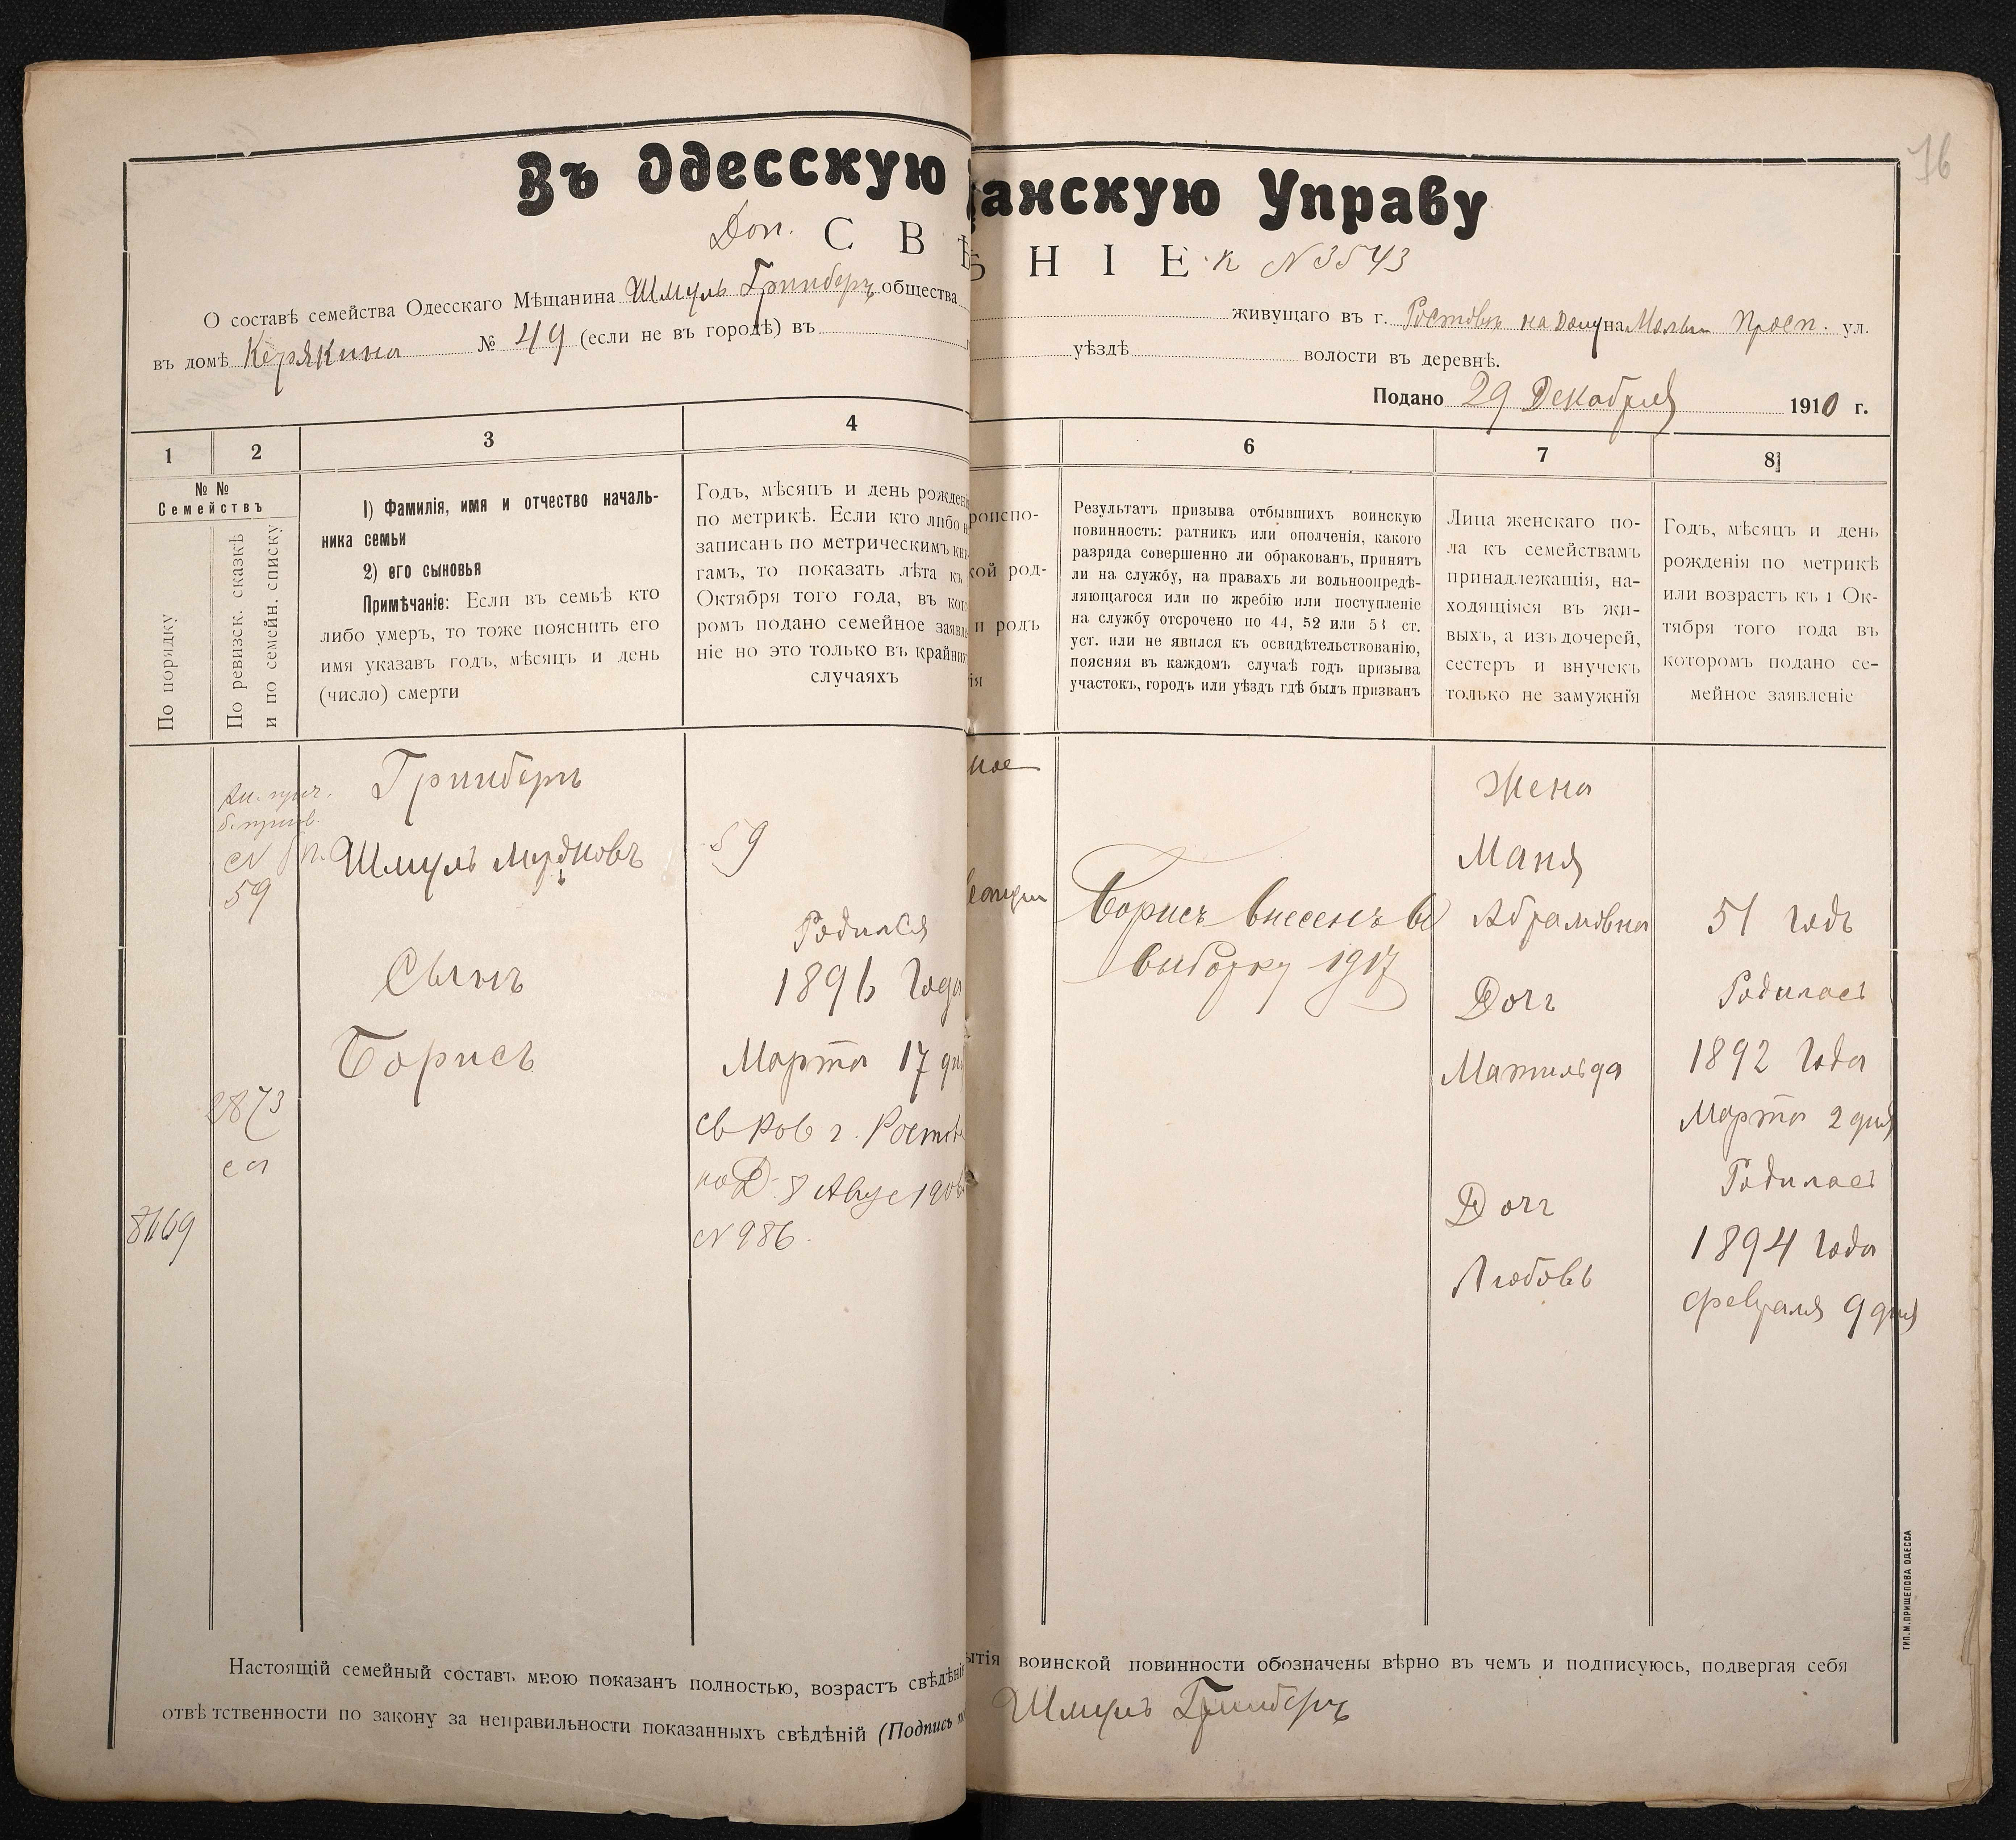 76
Въ Одесскую анскую Управу
Доп. СВѢ НІЕ к N 3543
О составѣ семейства Одесскаго Мѣщанина Шмуль Гринберг общества живущаго въ г. Ростовъ на Дону на Малый Просп. ул.
въ домѣ Керякина № 49 (если не въ городѣ) въ уѣздѣ волости въ деревнѣ.
Подано 29 Декабря 1910 г.
1 2 3 4 6 7 8
№ №
Семействъ
По порядку
По ревизск. сказкѣ
и по семейн. списку
1) Фамилія, имя и отчество началь-
ника семьи
2) его сыновья
Примѣчаніе: Если въ семьѣ кто
либо умеръ, то тоже пояснить его
имя указавъ годъ, мѣсяцъ и день
(число) смерти
Годъ, мѣсяцъ и день рождені
по метрикѣ. Если кто либо н
записанъ по метрическимъ кни
гамъ, то показать лѣта къ
Октября того года, въ кото
ромъ подано семейное заявле
ніе но это только въ крайних
случаяхъ
роиспо-
кой род-
и родъ
ія
Результатъ призыва отбывшихъ воинскую
повинность: ратникъ или ополченія, какого
разряда совершенно ли обракованъ, принятъ
ли на службу, на правахъ ли вольноопредѣ-
ляющагося или по жребію или поступленіе
на службу отсрочено по 44, 52 или 53 ст.
уст. или не явился къ освидѣтельствованію,
поясняя въ каждомъ случаѣ годъ призыва
участокъ, городъ или уѣздъ гдѣ былъ призванъ
Лица женскаго по-
ла къ семействамъ
принадлежащія, на-
ходящіяся въ жи-
выхъ, а изъ дочерей,
сестеръ и внучекъ
только не замужнія
Годъ, мѣсяцъ и день
рожденія по метрикѣ
или возрастъ къ 1 Ок-
тября того года въ
которомъ подано се-
мейное заявленіе
N
59
2873
са
8169
Гринбергъ
Шмуль Мордковъ
Сынъ
Борисъ
59
Родился
1896 Года
Марта 17 дн
св Раб г. Ростов
на Д. 8 Авгус 190
N 986.
ное
Борисъ внесенъ въ
выборку 1917
Жена
Маня
Абрамовна
Дочь
Матильда
Дочь
Любовь
51 годъ
Родилась
1892 Года
Марта 2 дня
Родилась
1894 Года
февраля 9 дня
Настоящій семейный составъ мною показанъ полностью, возрастъ свѣдѣні ытія воинской повинности обозначены вѣрно въ чемъ и подписуюсь, подвергая себя
отвѣтственности по закону за неправильности показанныхъ свѣдѣній (Подпись Шмуль Гринбергъ
ТИП. М. ПРИЩЕПОВА ОДЕССА